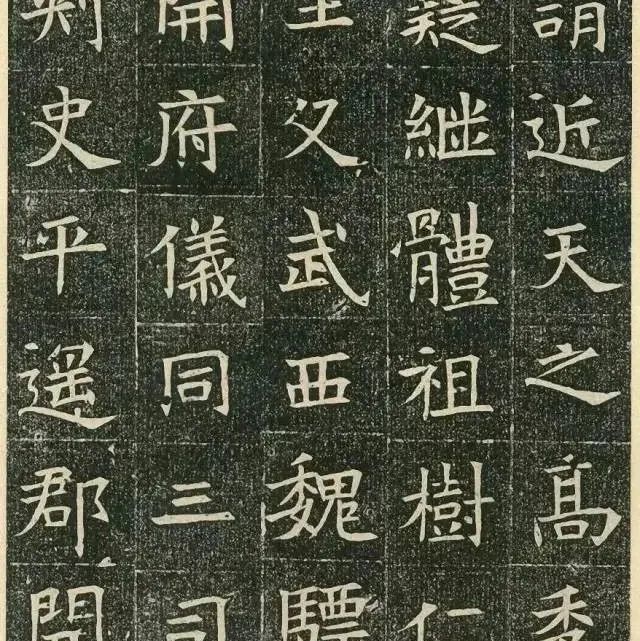 謂近天之髙
繼體祖樹仁
父武西魏驃
開府儀同三司
刺史平遥郡開